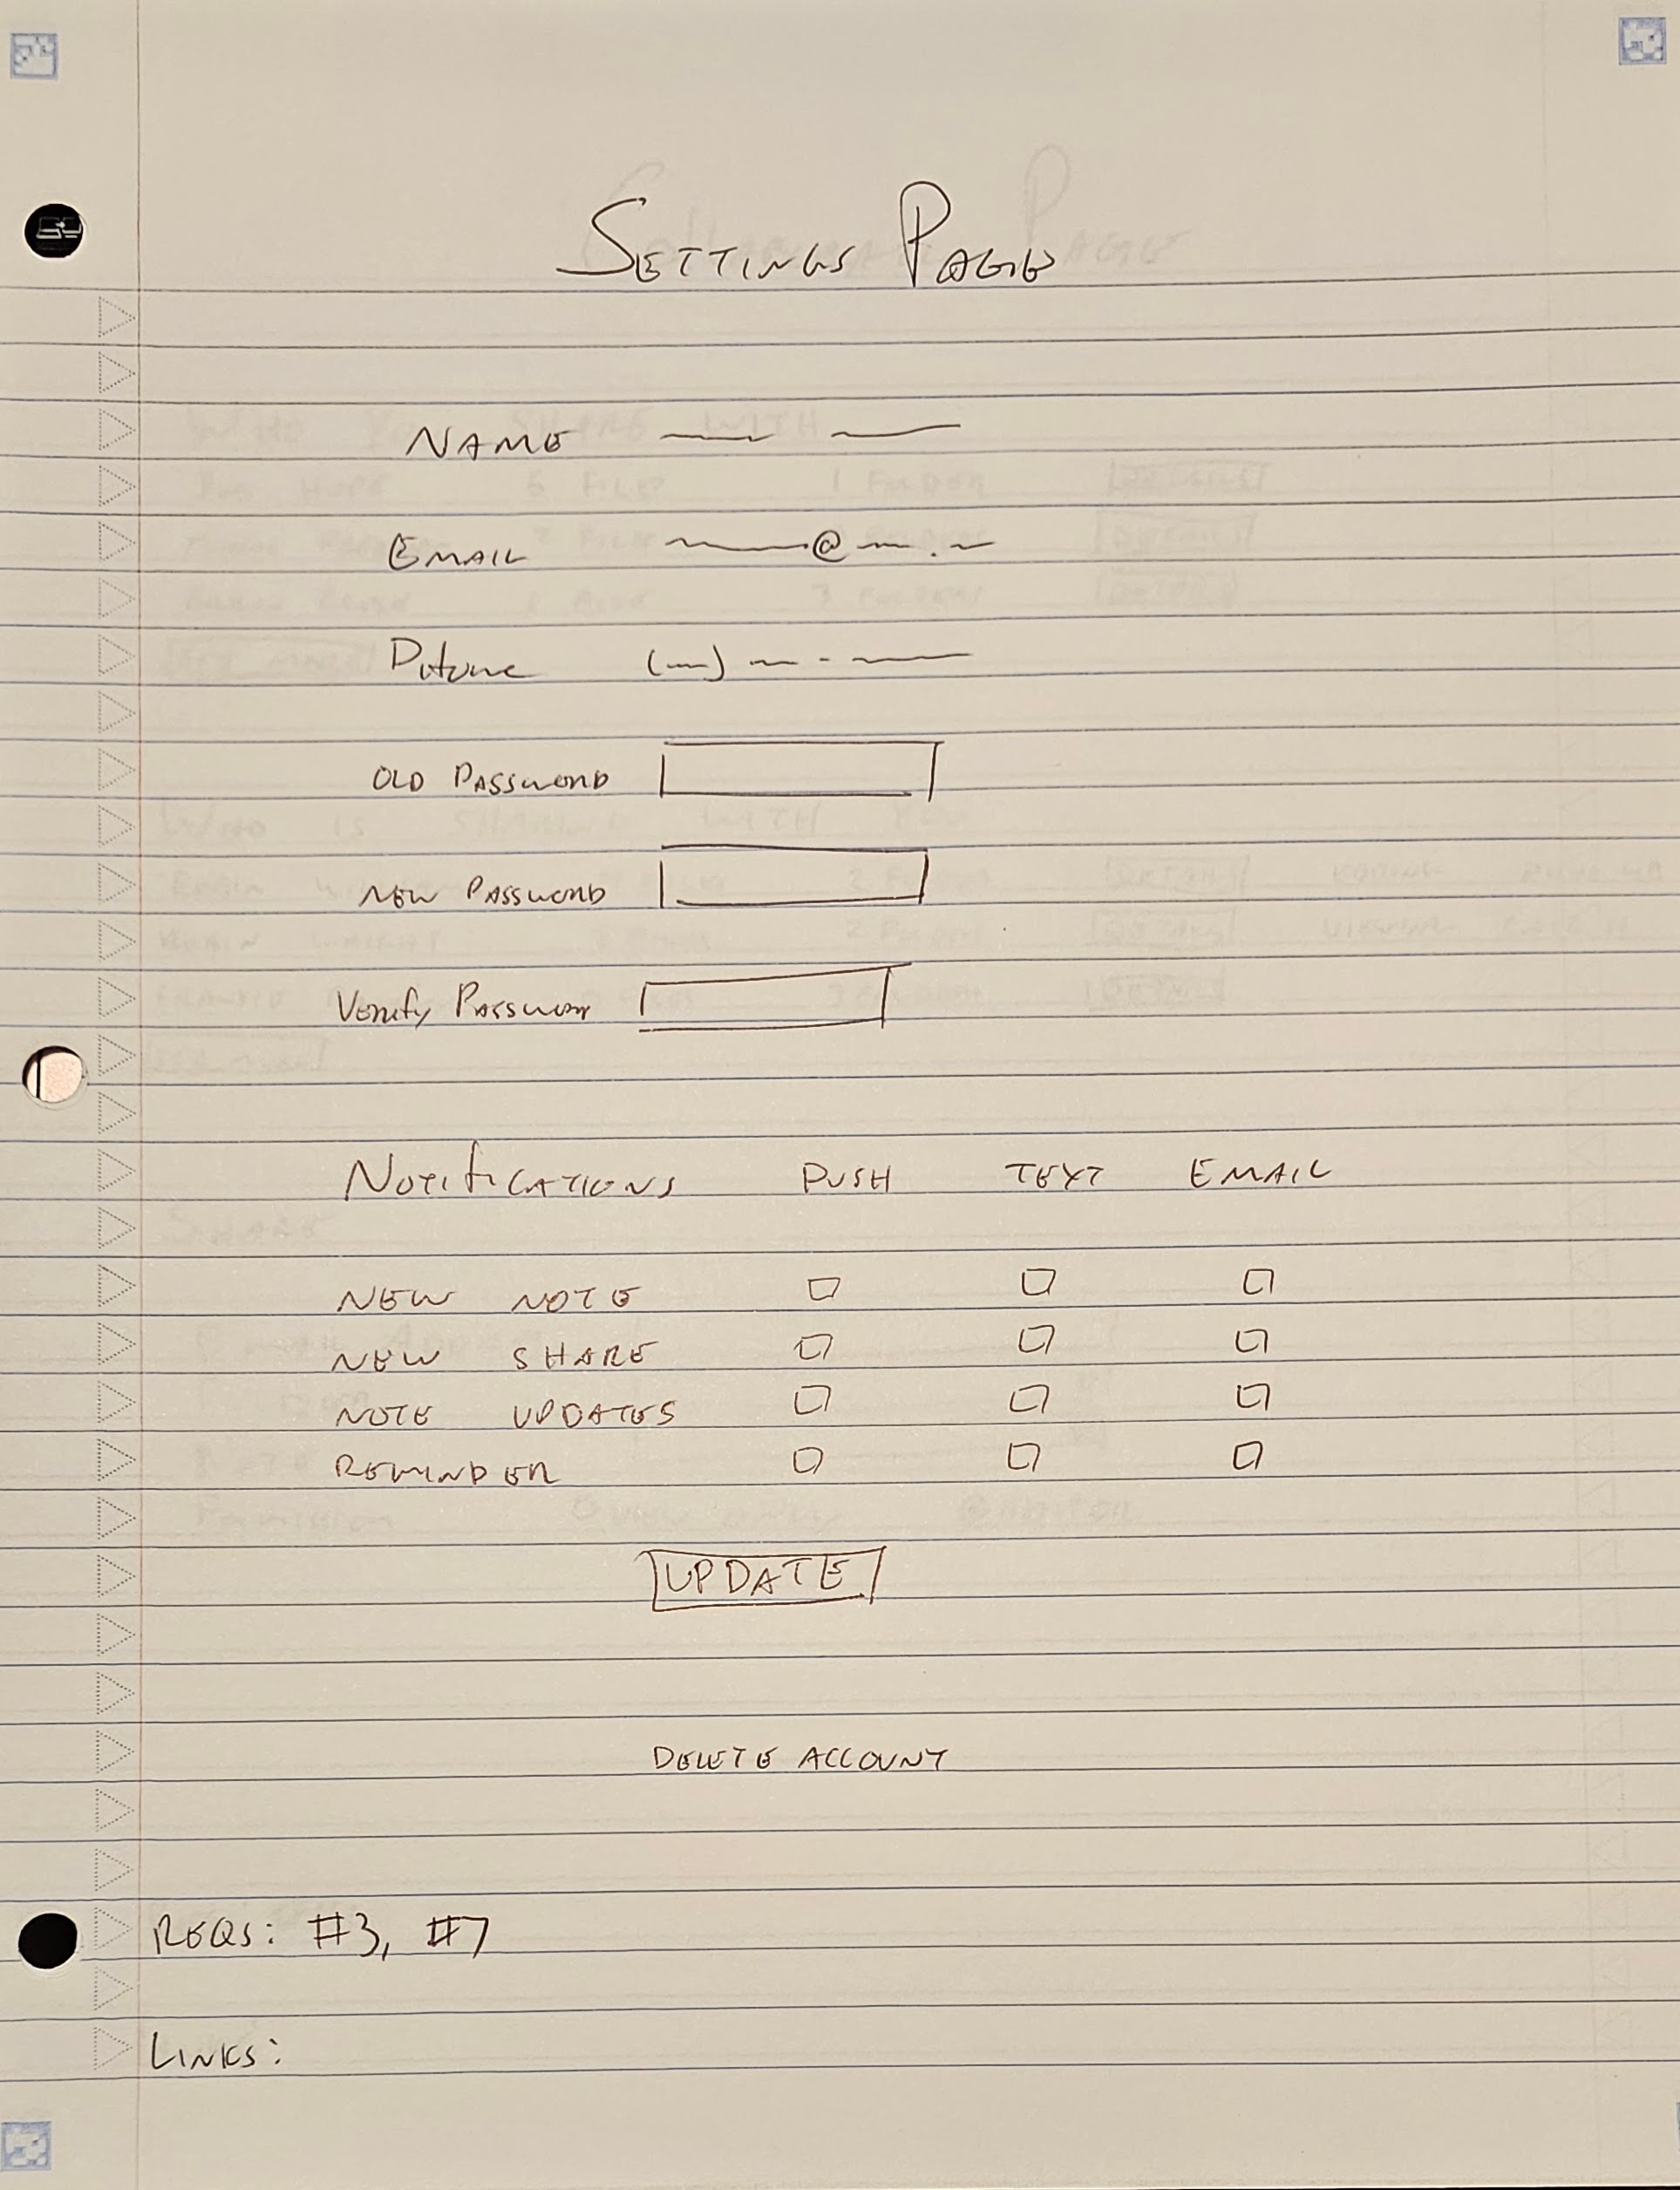 Settings Page
Name
Email @ .
Phone ( ) -
Old Password
New Password
Verify Password
Notifications Push Text Email
New Note
New Share
Note Updates
Reminder
Update
Delete Account
Reqs: #3, #7
Links: